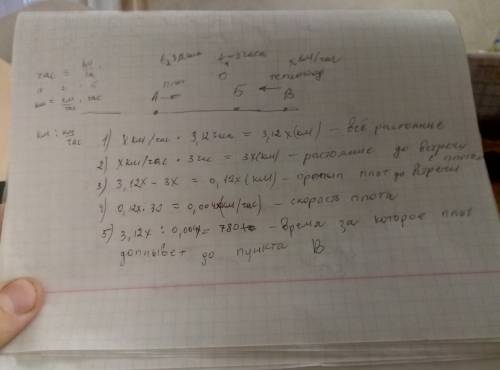 t = 3 часа x км/час
час = км
плот пешеход
А Б В
км = км/час · час
км : км/час
1) x км/час · 3,12 час = 3,12 x (км) – всё растояние
2) x км/час · 3 час = 3x (км) – растояние до встречи с плотом
3) 3,12x – 3x = 0,12x (км) – проплыл плот до встречи
4) 0,12x : 3 = 0,004x (км/час) – скорость плота
5) 3,12x : 0,004x = 780 – время за которое плот
доплывет до пункта В